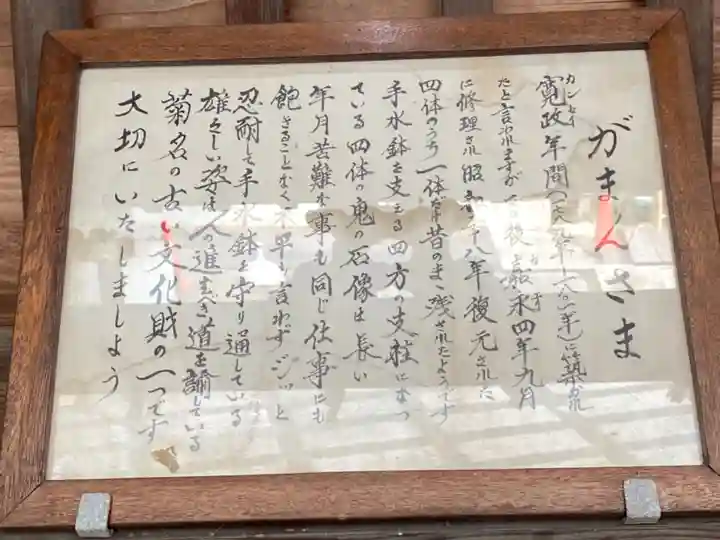 がまんさま
カンセイ
寛政年間(一七八九年-一八〇一年)に築かれ
たと言われますが その後 嘉永四年九月
に修理され 昭和 十八年復元された
四体のうち一体だけ昔のまゝ残されたようです
手水鉢を支える四方の支柱になっ
ている四体の鬼の石像は長い
年月苦難な事も同じ仕事にも
飽きることなく不平も言わずジッと
忍耐して手水鉢を守り通している
雄々しい姿は人の進むべき道を諭している
菊名の古い文化財の一つです
大切にいたしましょう